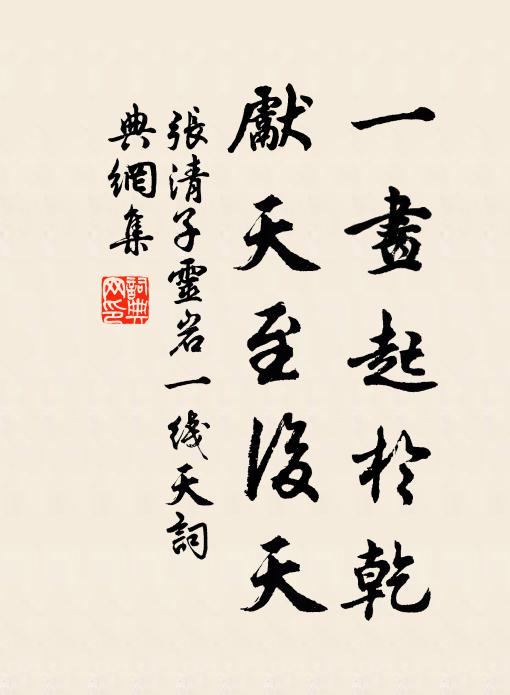 一畫起於乾
獻天至後天
張清子靈岩一线天詞
典網集
詞典
网印